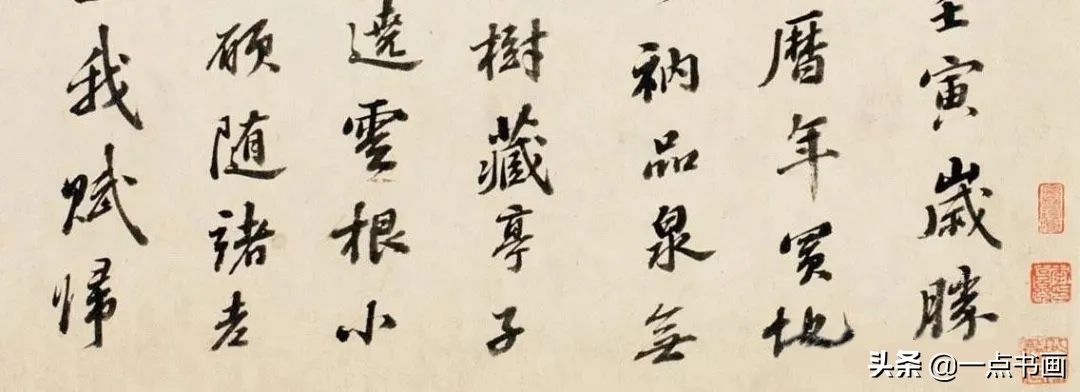 壬寅歲勝
曆年買地
衲品泉無
樹藏亭子
遶雲根小
願随諸老
我賦歸
头条 @一点书画